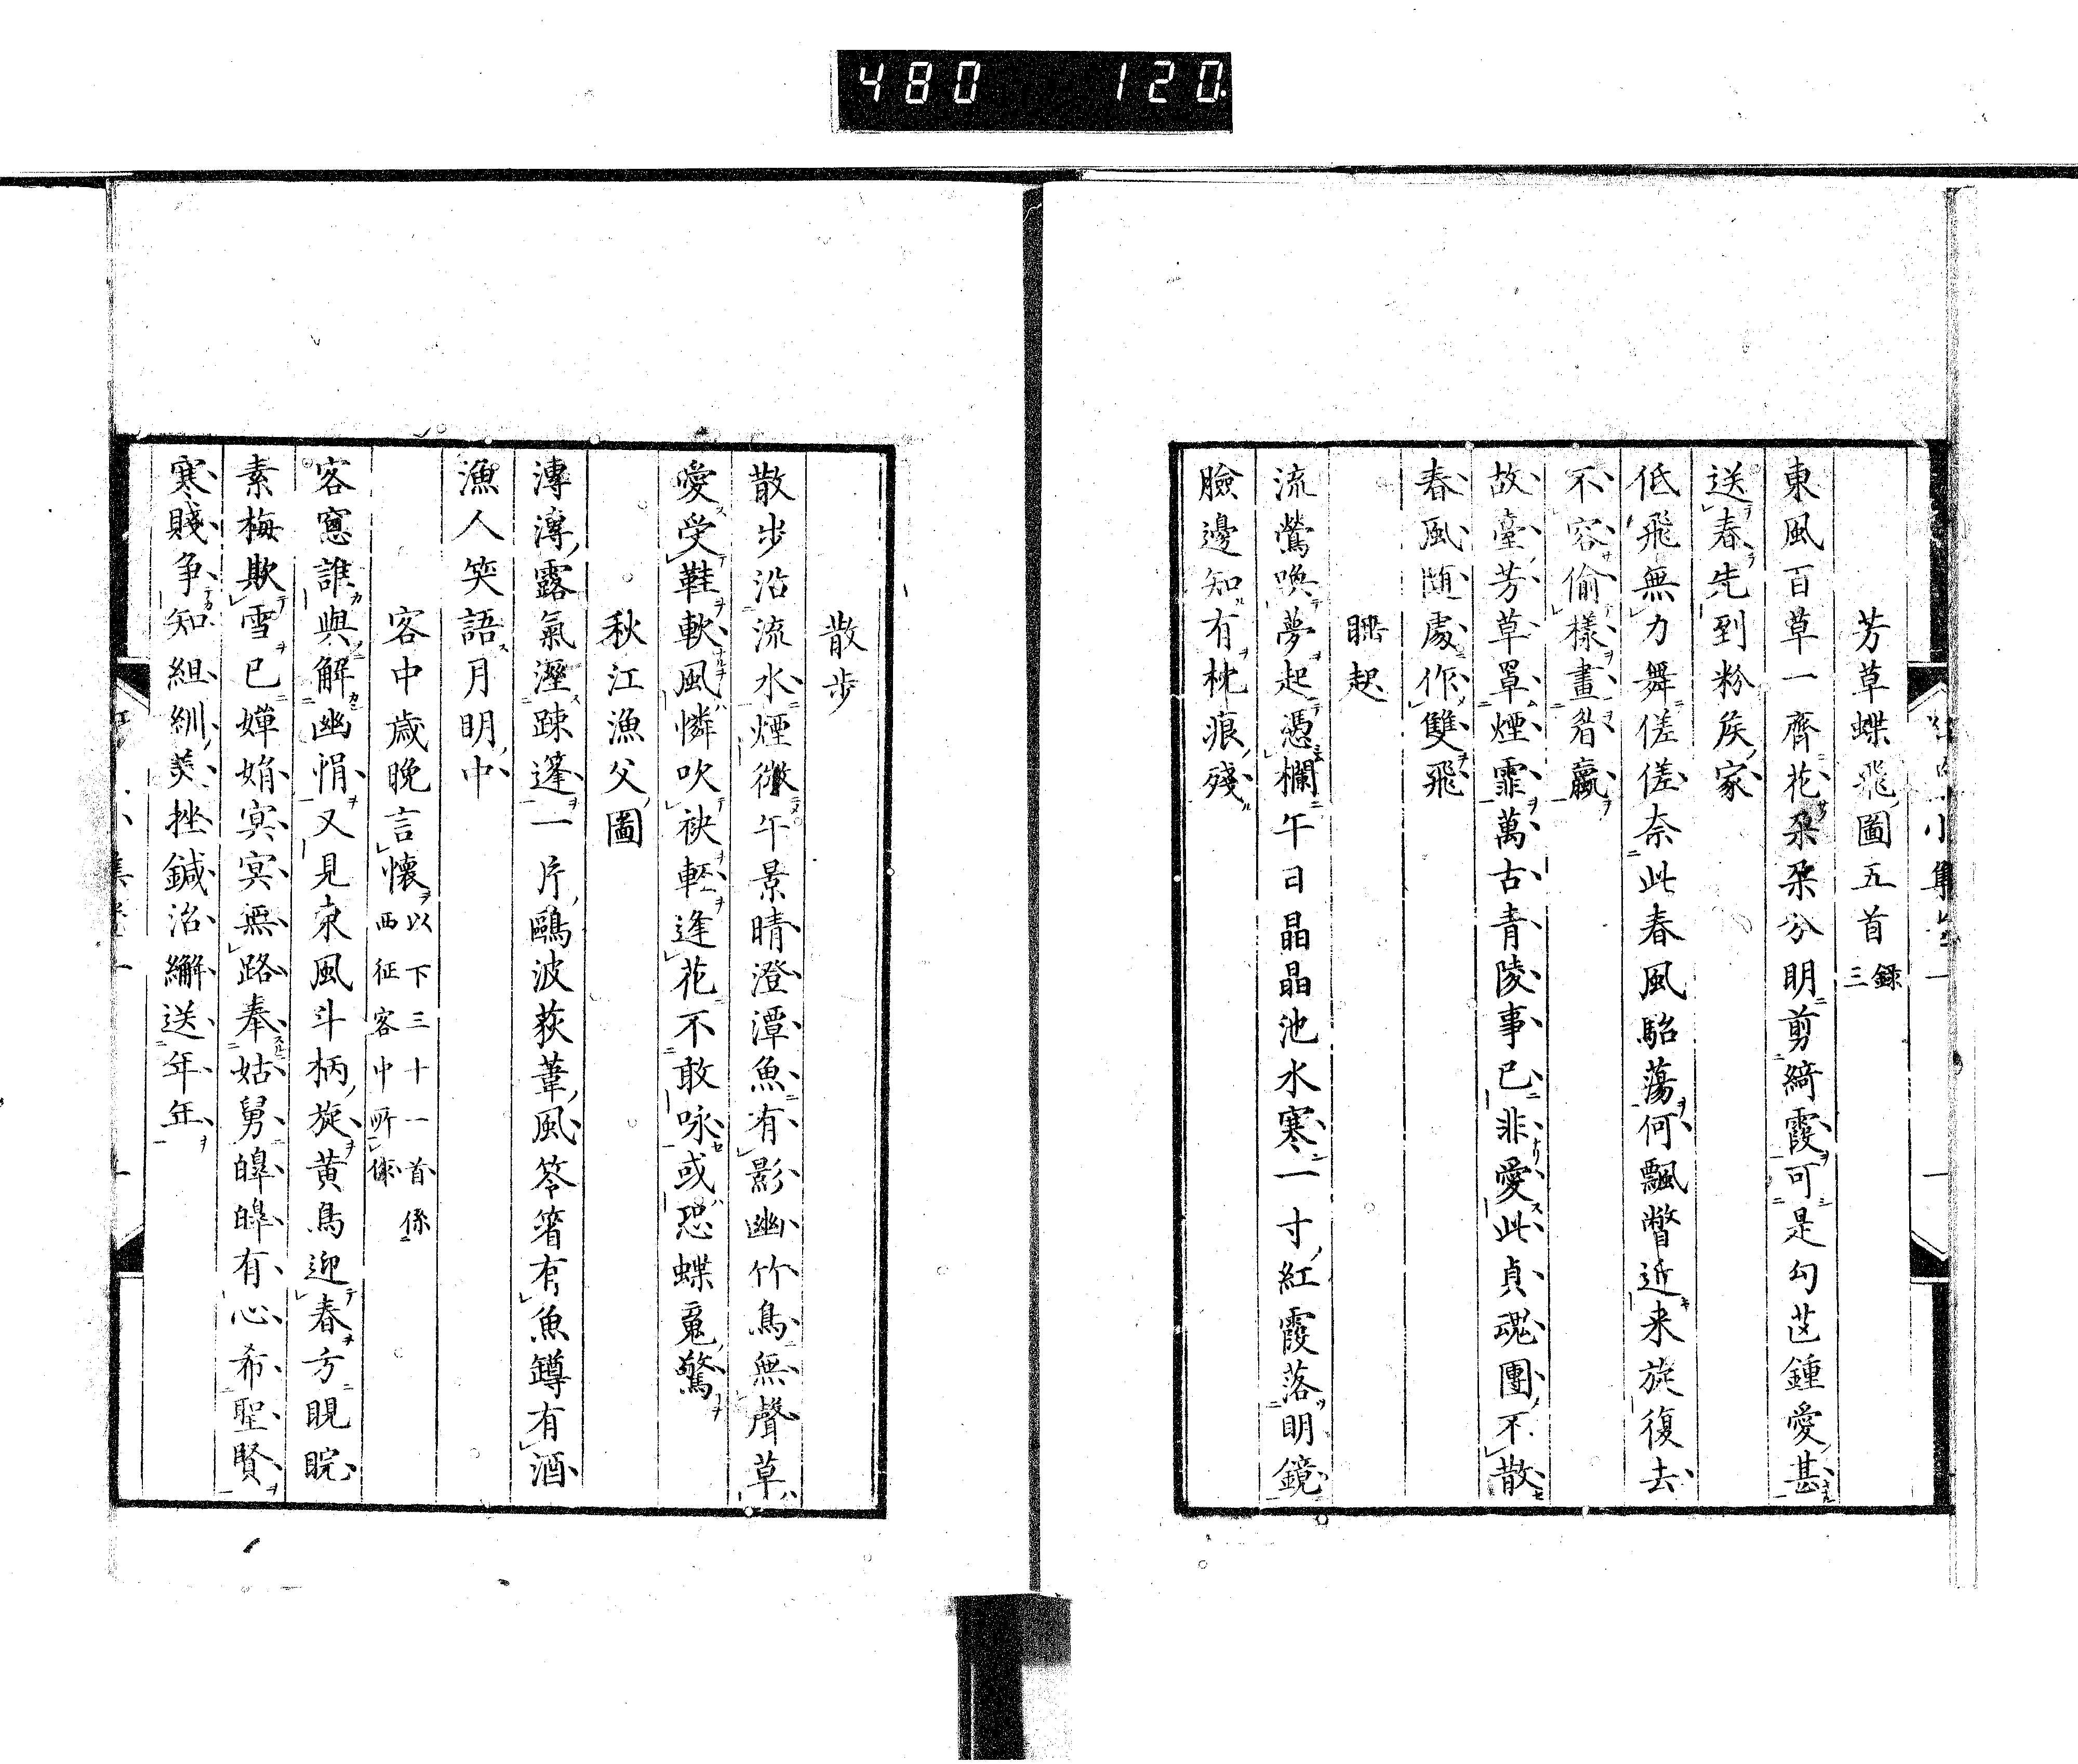 480 120
芳草蝶飛圖五首 錄三
東風百草一齊花朶朶分明剪綺霞可是勾芒鍾愛甚
送春先到粉侯家
低飛無力舞傞傞奈此春風駘蕩何飄瞥近来旋復去
不容偷樣畫省贏
故臺芳草罩煙霏萬古青陵事已非愛此貞魂團不散
春風随處作雙飛
睡起
流鶯喚夢起憑欄午日晶晶池水寒一寸紅霞落明鏡
臉邊知有枕痕殘
散步
散步沿流水煙微午景晴澄潭魚有影幽竹鳥無聲草
愛受鞋軟風憐吹袂輕逢花不敢咏或恐蝶䰟驚
秋江漁父圖
漙漙露氣溼疎篷一片鷗波荻葦風笭箵有魚罇有酒
漁人笑語月明中
客中歲晚言懷 以下三十一首係
西征客中所作
客窓誰與解幽悁又見東風斗柄旋黄鳥迎春方睍睆
素梅欺雪已嬋娟㝠㝠無路奉姑舅皥皥有心希聖賢
寒賤争知組紃美挫鍼治繲送年年